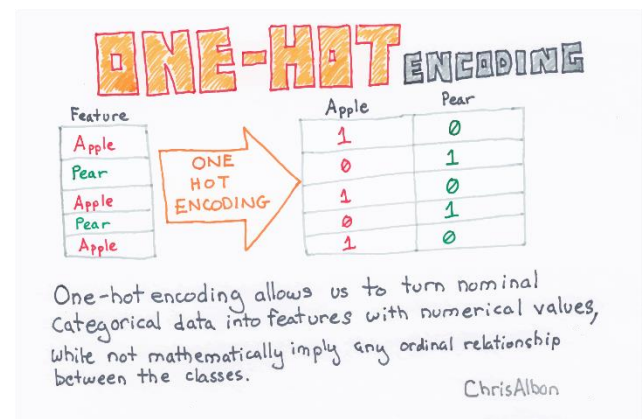 ONE-HOT ENCODING
Feature
Apple
Pear
Apple
Pear
Apple
ONE
HOT
ENCODING
Apple Pear
1 0
0 1
1 0
0 1
1 0
One-hot encoding allows us to turn nominal
Categorical data into features with numerical values,
while not mathematically imply any ordinal relationship
between the classes.
ChrisAlbon